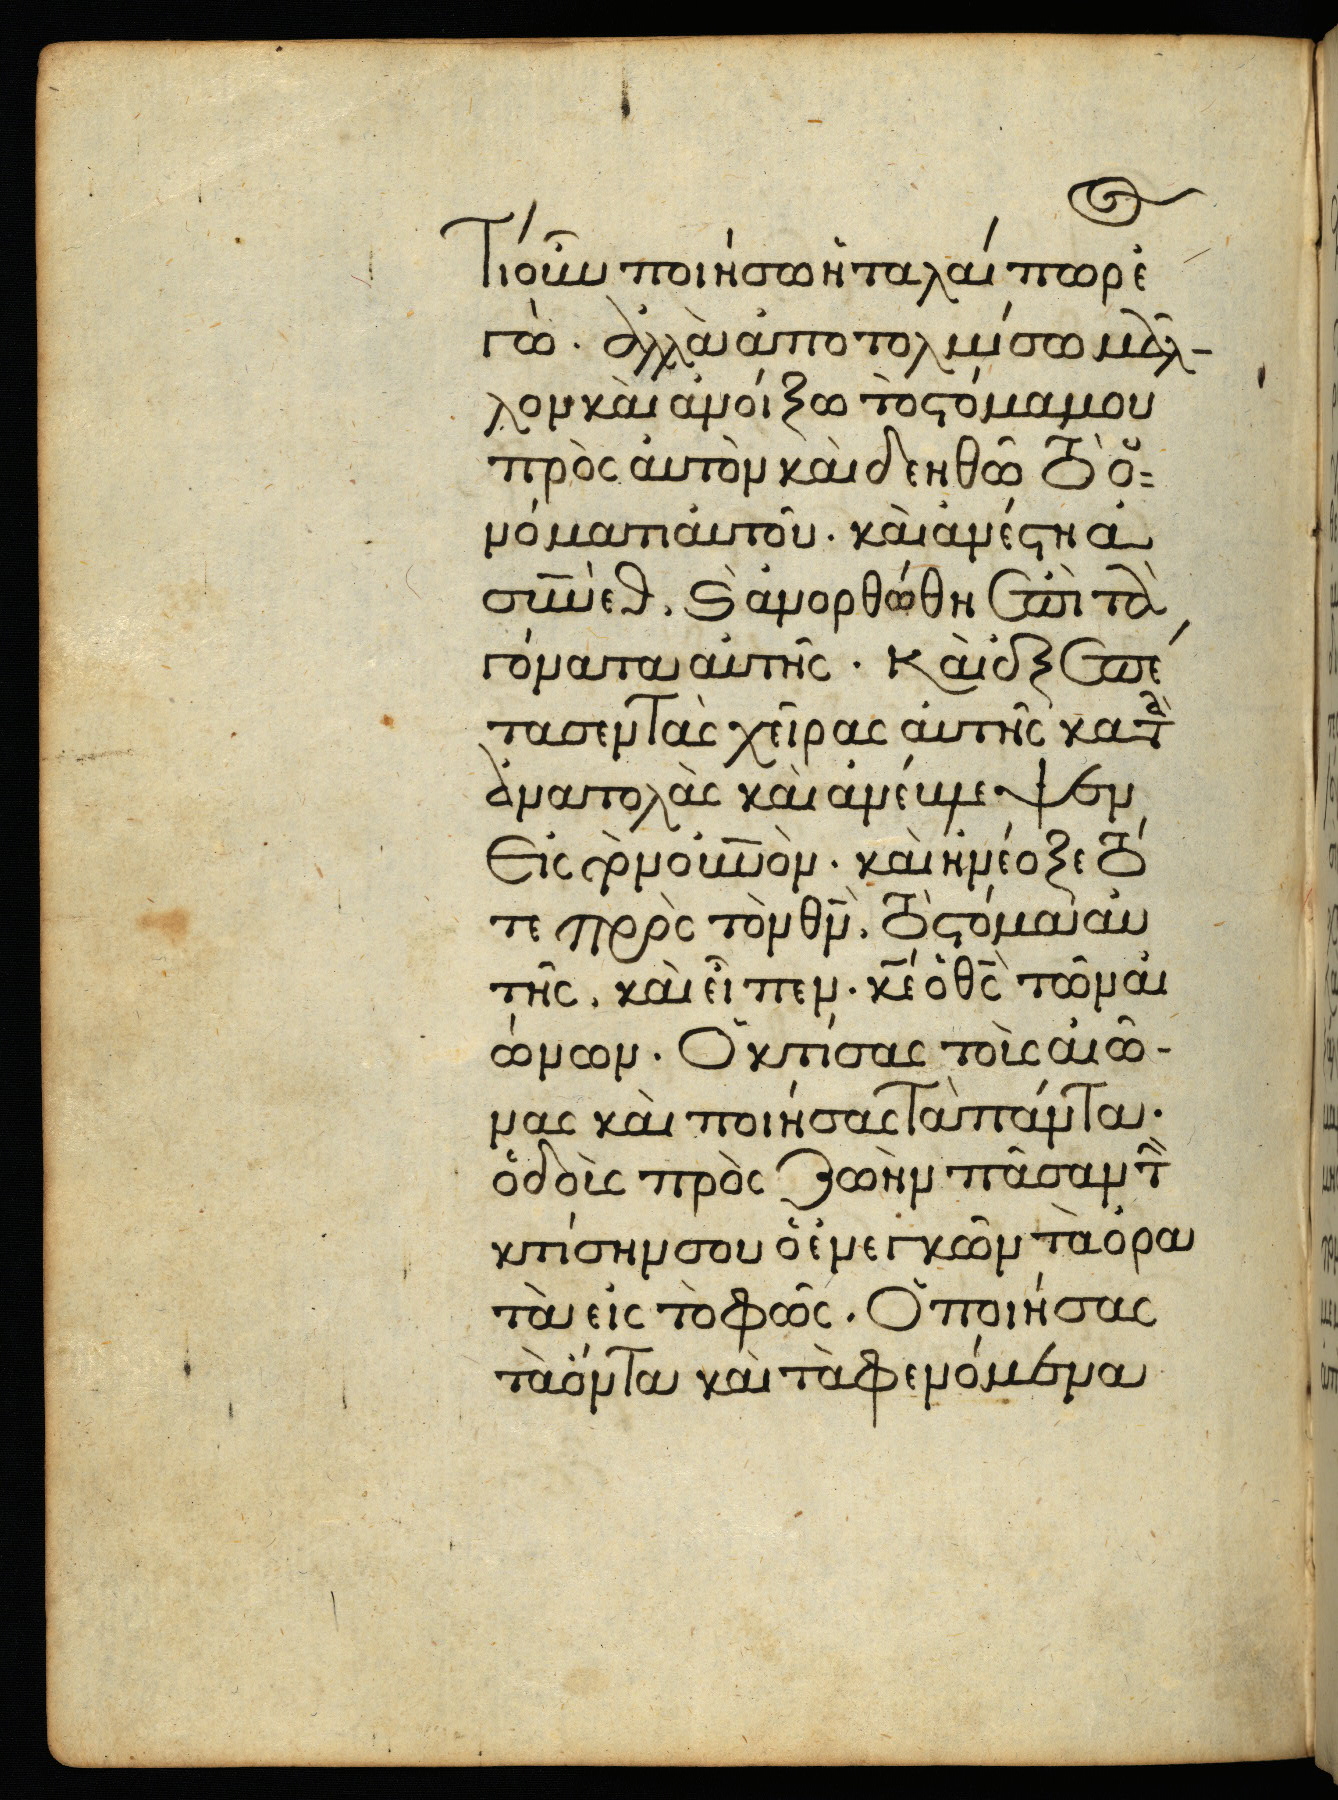 Τί οὖν ποιήσω ἡ ταλαίπωρ ἐ
γώ. ἀλλὰ ἀποτολμήσω μᾶλ-
λον καὶ ἀνοίξω τὸ ϛόμα μου
πρὸς ἀυτὸν καὶ δεηθῶ τὸ ὄ=
νόματι ἀυτοῦ. καὶ ἀνέϛη ἀ
συνὲθ. Ϛ ἀνορθώθη ἐπὶ τὰ
γόνατα ἀυτῆς. Καὶ ἐξεπέ
τασεν τὰς χεῖρας ἀυτῆς κατὰ
ἀνατολὰς καὶ ἀνέμεψεν
Εἰς ρ̀ν οὐνὸν. καὶ ἠνέοξε τό
τε πρὸς τὸν θν̄. τὸ ϛόμα ἀυ
τῆς. καὶ εἶπεν. κ̄έ ὁ θς̄ τῶν αἰ
ώνων. Ὁ κτίσας τοὶς αἰῶ-
νας καὶ ποιήσας τὰ πάντα.
ὁ δοὶς πρὸς ζωὴν πᾶσαν τὴ
κτίσην σου ὁ ἐνεγκῶν τὰ ὁρα
τὰ εἰς τὸ φῶς. Ὁ ποιήσας
τὰ ὄντα καὶ τὰ φενόμενα